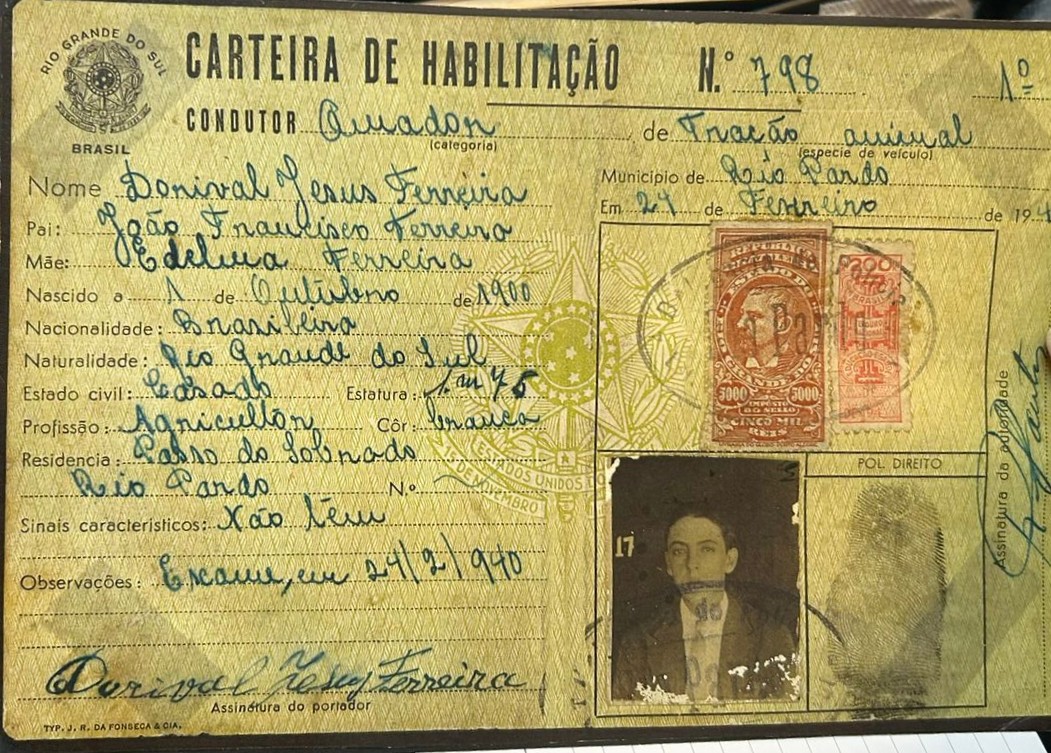 RIO GRANDE DO SUL
BRASIL
CARTEIRA DE HABILITAÇÃO N.º 798 1º
CONDUTOR Amador de Tração animal
(categoria) (especie de veículo)
Nome Dorival Jesus Ferreira
Pai: João Francisco Ferreira
Mãe: Edelvia Ferreira
Nascido a 1 de Outubro de 1900
Nacionalidade: Brasileira
Naturalidade: Rio Grande do Sul
Estado civil: Casado Estatura: 1m75
Profissão: Agricultor Côr: branca
Residencia: Passo do Sobrado
Rio Pardo N.º
Sinais característicos: Não têm
Observações: Exame, em 24/2/940
Dorival Jesus Ferreira
Assinatura do portador
TYP. J. R. DA FONSECA & CIA.
Município de Rio Pardo
Em 24 de Fevereiro de 194
REPUBLICA
ESTADO DO RIO GRANDE DO SUL
5000 5000
IMPOSTO DO SELLO
CINCO MIL REIS
200
BRASIL
ESTADOS UNIDOS DO
15 DE NOVEMBRO
17
POL. DIREITO
Assinatura da autoridade